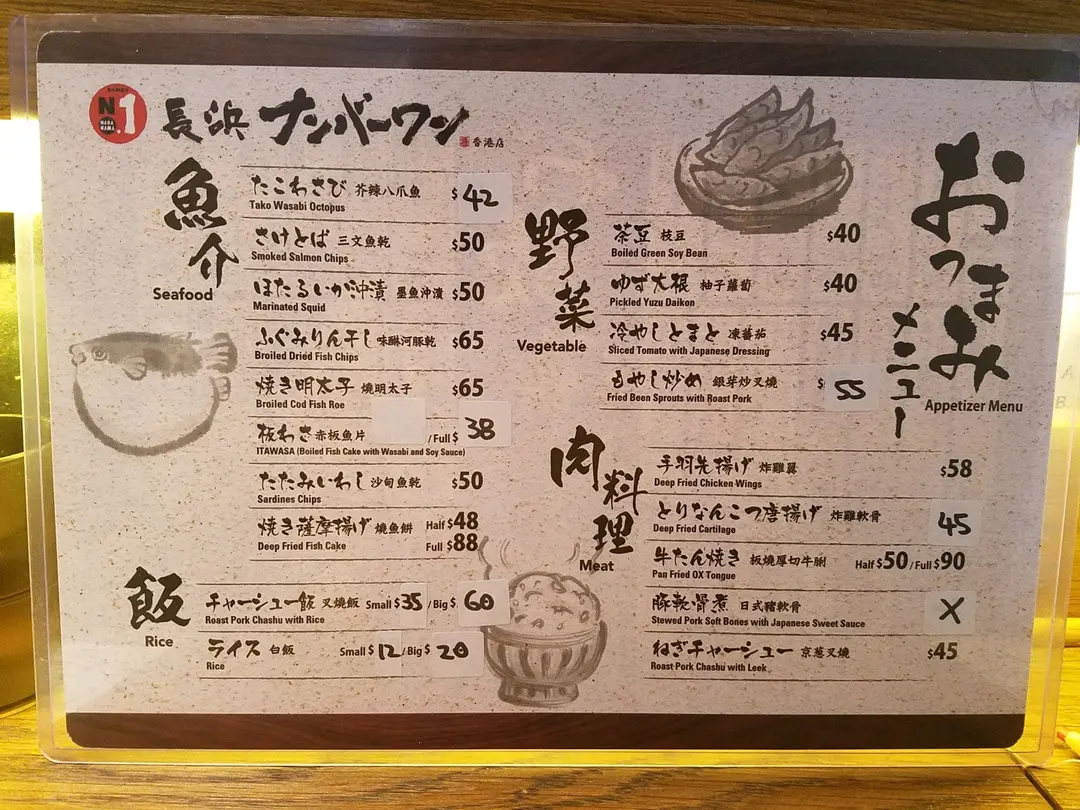 N
1
長浜 ナンバーワン
香港店
おつまみ
メニュー
Appetizer Menu
魚介
Seafood
たこわさび 芥辣八爪魚 $42
Tako Wasabi Octopus
さけとば 三文魚乾 $50
Smoked Salmon Chips
ほたるいか沖漬 墨魚沖漬 $50
Marinated Squid
ふぐみりん干し 味醂河豚乾 $65
Broiled Dried Fish Chips
焼き明太子 燒明太子 $65
Broiled Cod Fish Roe
板わさ 赤板魚片 / Full $ 38
ITAWASA (Boiled Fish Cake with Wasabi and Soy Sauce)
たたみいわし 沙甸魚乾 $50
Sardines Chips
焼き薩摩揚げ 燒魚餅 Half $48
Deep Fried Fish Cake Full $88
飯
Rice
チャーシュー飯 叉燒飯 Small $35 / Big $ 60
Roast Pork Chashu with Rice
ライス 白飯 Small $ 12 / Big $ 20
Rice
野菜
Vegetable
茶豆 枝豆 $40
Boiled Green Soy Bean
ゆず大根 柚子蘿蔔 $40
Pickled Yuzu Daikon
冷やしとまと 凍蕃茄 $45
Sliced Tomato with Japanese Dressing
もやし炒め 銀芽炒叉燒 $ 55
Fried Been Sprouts with Roast Pork
肉料理
Meat
手羽先揚げ 炸雞翼 $58
Deep Fried Chicken Wings
とりなんこつ唐揚げ 炸雞軟骨 45
Deep Fried Cartilage
牛たん焼き 板燒厚切牛脷 Half $50 / Full $90
Pan Fried OX Tongue
豚軟骨煮 日式豬軟骨 X
Stewed Pork Soft Bones with Japanese Sweet Sauce
ねぎチャーシュー 京葱叉燒 $45
Roast Pork Chashu with Leek